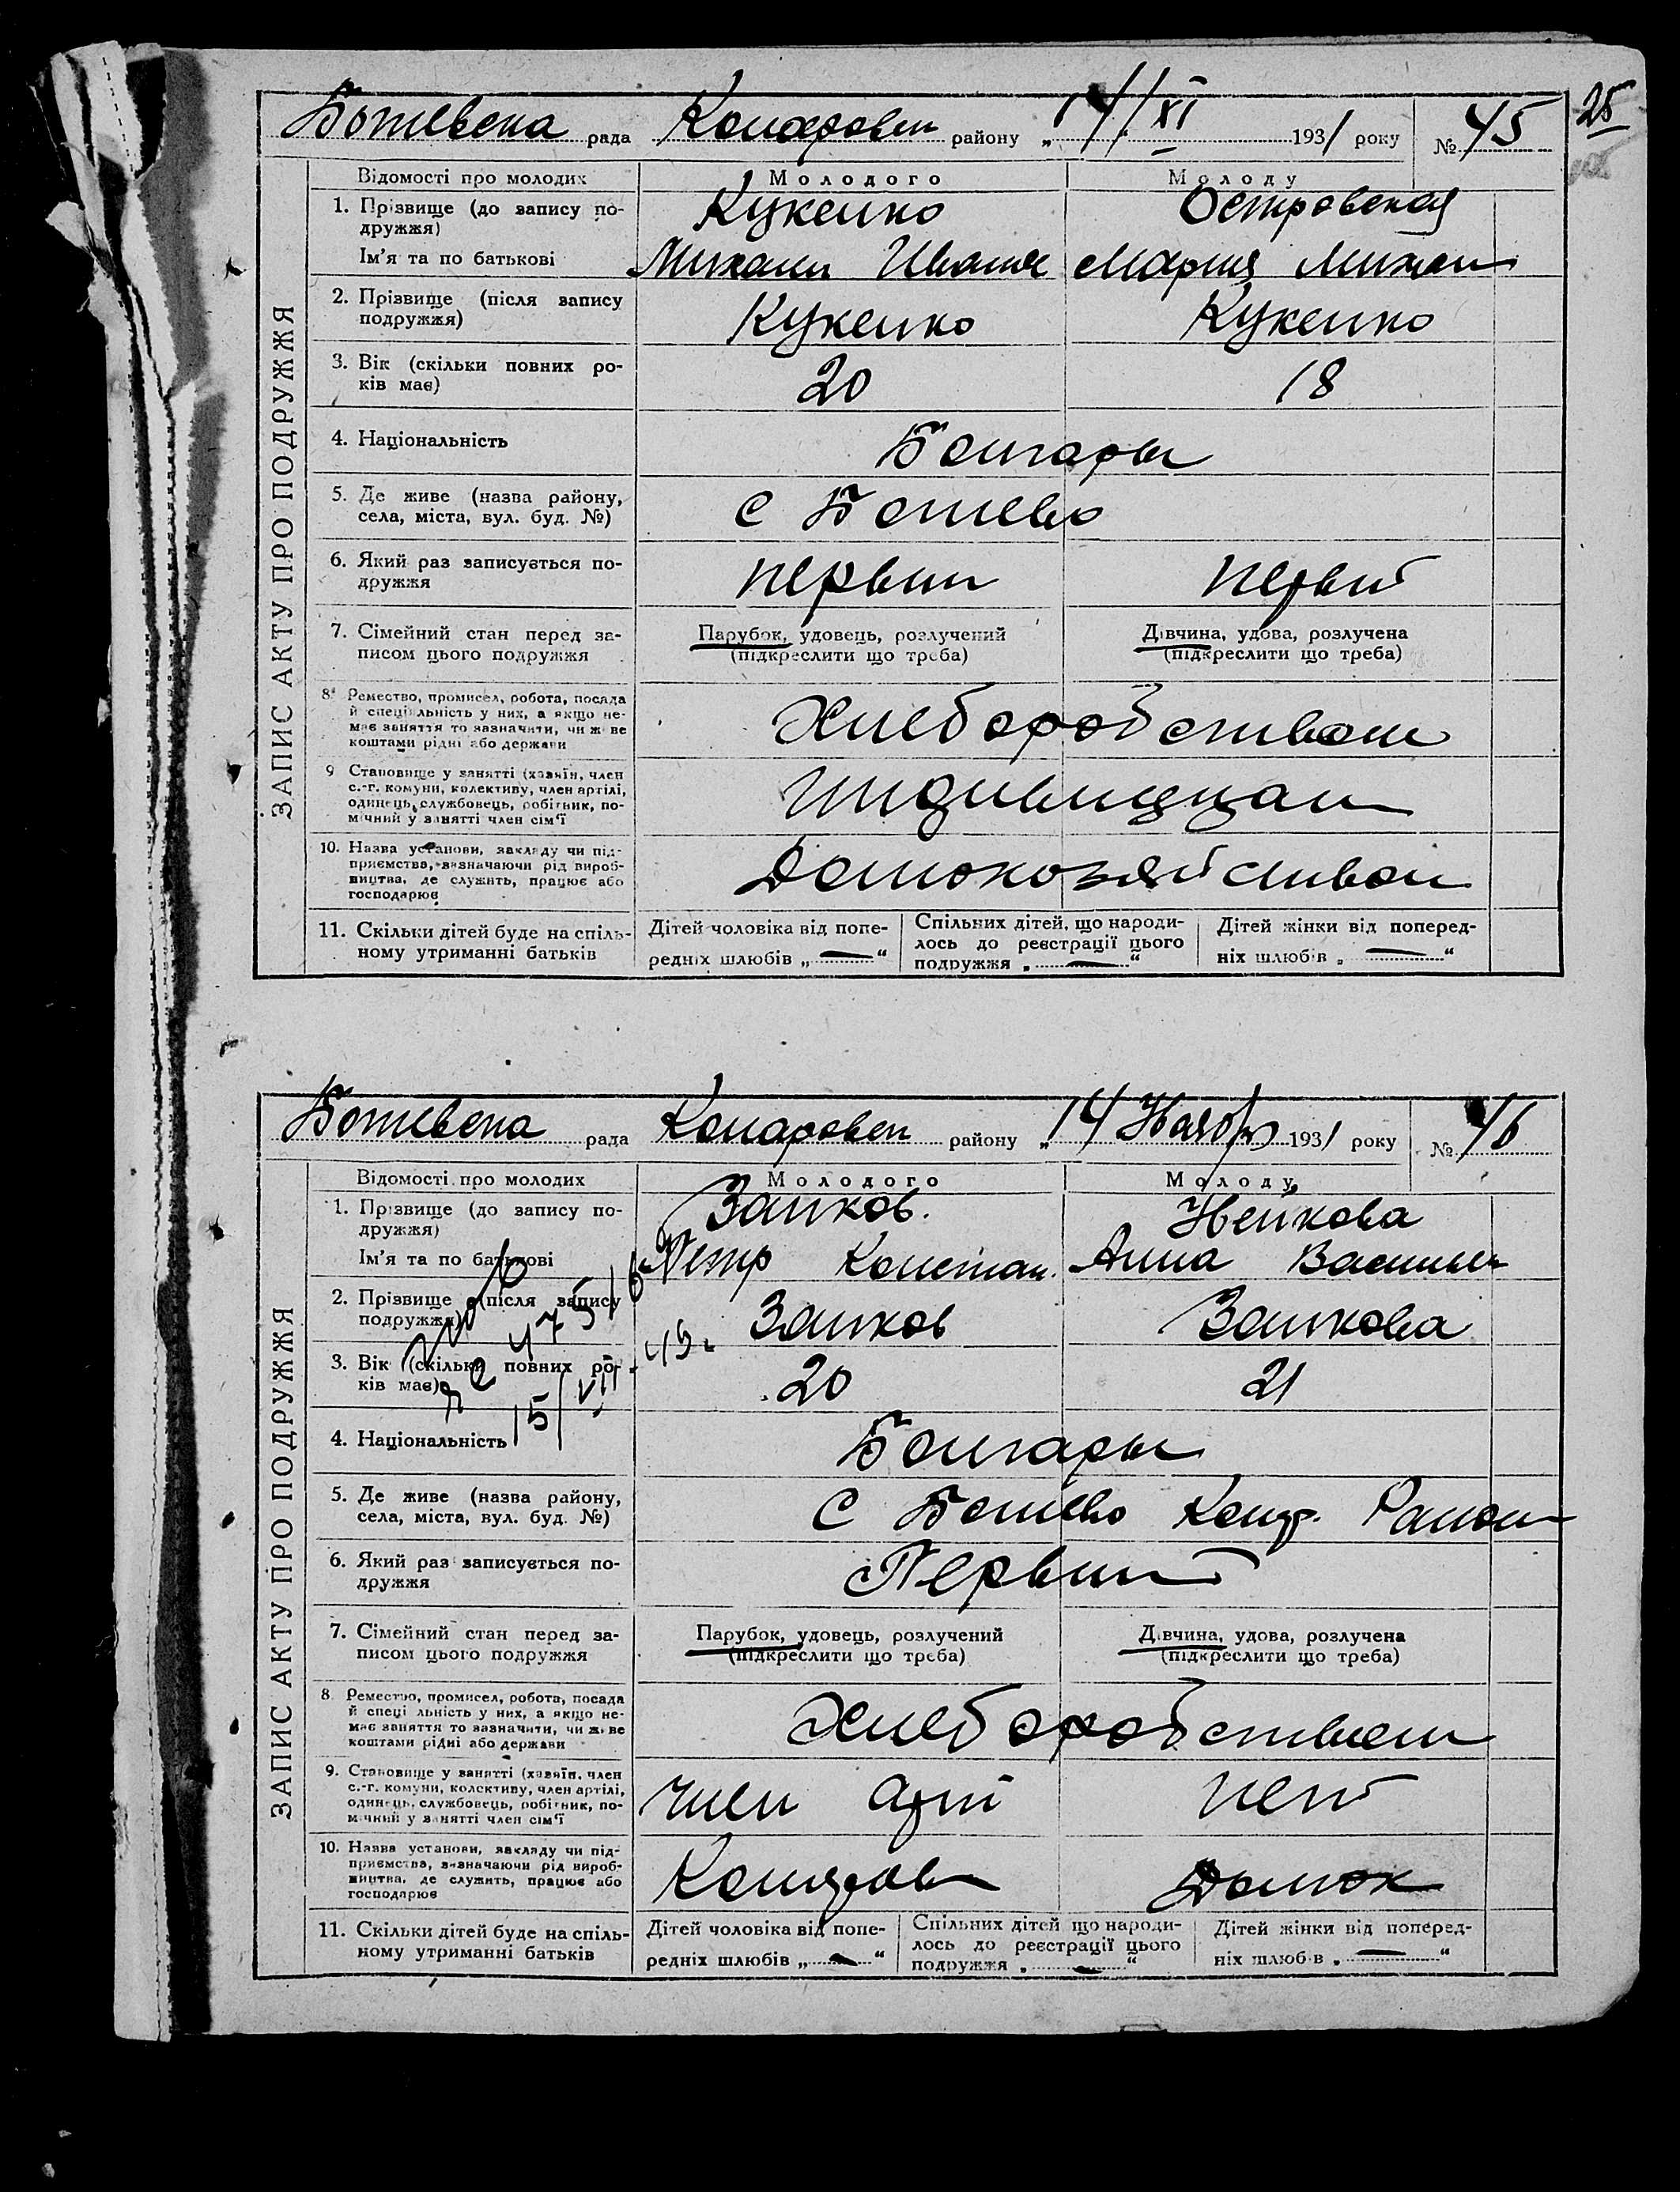 25
Ботевска рада Коларовск району „14/XI 1931 року № 45
ЗАПИС АКТУ ПРО ПОДРУЖЖЯ
Відомості про молодих Молодого Молоду
1. Прізвище (до запису по-
дружжя) Кукенко Островская
Ім'я та по батькові Михаил Иванов Мария Михаил
2. Прізвище (після запису
подружжя) Кукенко Кукенко
3. Вік (скільки повних ро-
ків має) 20 18
4. Національність Болгары
5. Де живе (назва району,
села, міста, вул. буд. №) с Ботево
6. Який раз записується по-
дружжя первый первый
7. Сімейний стан перед за-
писом цього подружжя
Парубок, удовець, розлучений
(підкреслити що треба)
Дівчина, удова, розлучена
(підкреслити що треба)
8. Ремество, промисел, робота, посада
й спеціяльність у них, а якщо не-
має заняття то зазначити, чи живе
коштами рідні або держави
Хлеборобством
9. Становище у занятті (хазяїн, член
с.-г. комуни, колективу, член артілі,
одинець, службовець, робітник, по-
мічний у занятті член сім'ї
10. Назва установи, закладу чи під-
приємства, зазначаючи рід вироб-
ництва, де служить, працює або
господарює
11. Скільки дітей буде на спіль-
ному утриманні батьків
Дітей чоловіка від попе-
редніх шлюбів „—“
Спільних дітей, що народи-
лось до реєстрації цього
подружжя „—“
Дітей жінки від поперед-
ніх шлюбів „—“
Ботевска рада Коларовск району „14 Ноябр 1931 року № 46
ЗАПИС АКТУ ПРО ПОДРУЖЖЯ
Відомості про молодих Молодого Молоду
1. Прізвище (до запису по-
дружжя) Нейкова
Ім'я та по батькові Петр Констан. Анна Василь
2. Прізвище (після запису
подружжя)
3. Вік (скільки повних ро-
ків має) 20 21
4. Національність Болгары
5. Де живе (назва району,
села, міста, вул. буд. №) С Ботево Район
6. Який раз записується по-
дружжя Первый
7. Сімейний стан перед за-
писом цього подружжя
Парубок, удовець, розлучений
(підкреслити що треба)
Дівчина, удова, розлучена
(підкреслити що треба)
8. Ремество, промисел, робота, посада
й спеціяльність у них, а якщо не-
має заняття то зазначити, чи живе
коштами рідні або держави
Хлеборобством
9. Становище у занятті (хазяїн, член
с.-г. комуни, колективу, член артілі,
одинець, службовець, робітник, по-
мічний у занятті член сім'ї
член Арт нет
10. Назва установи, закладу чи під-
приємства, зазначаючи рід вироб-
ництва, де служить, працює або
господарює
11. Скільки дітей буде на спіль-
ному утриманні батьків
Дітей чоловіка від попе-
редніх шлюбів „—“
Спільних дітей що народи-
лось до реєстрації цього
подружжя „—“
Дітей жінки від поперед-
ніх шлюбів „—“